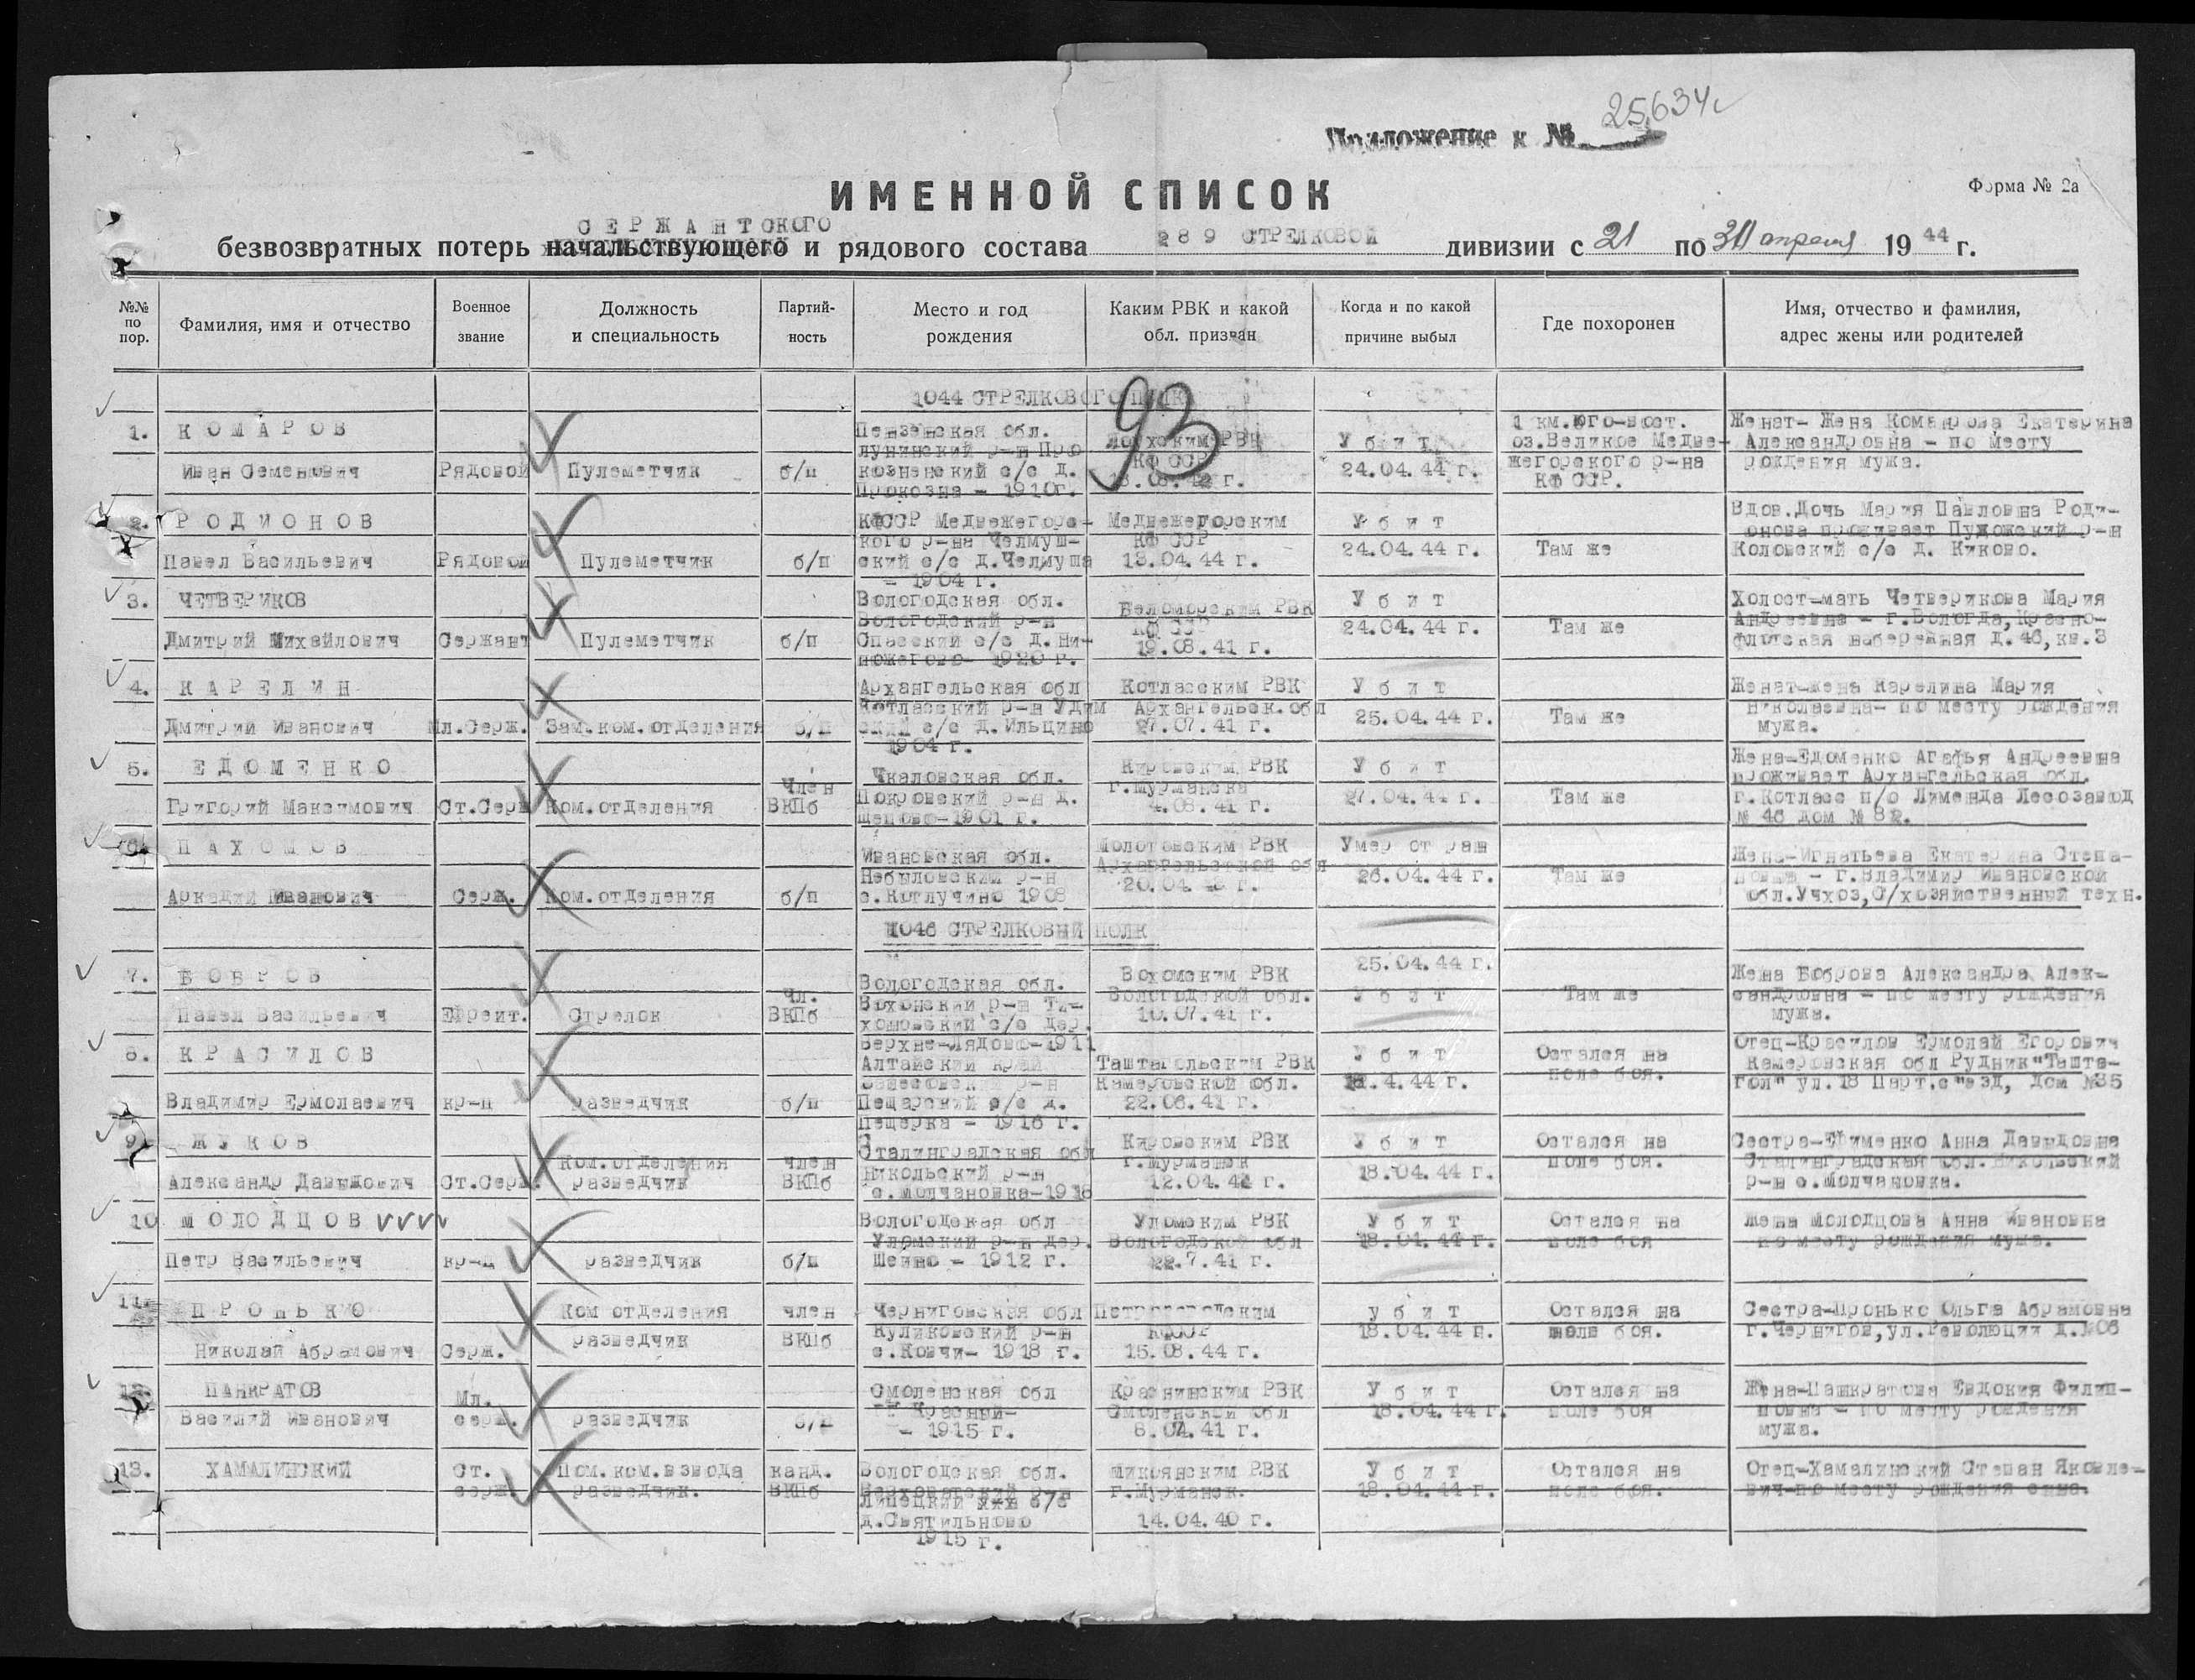 25634с
Приложение к №
ИМЕННОЙ СПИСОК
Форма № 2а
СЕРЖАНТСКОГО
безвозвратных потерь начальствующего и рядового состава 289 СТРЕЛКОВОЙ дивизии с 21 по 30 апреля 1944 г.
№№ по пор.
Фамилия, имя и отчество
Военное звание
Должность и специальность
Партий-ность
Место и год рождения
Каким РВК и какой обл. призван
Когда и по какой причине выбыл
Где похоронен
Имя, отчество и фамилия, адрес жены или родителей
93
1044 СТРЕЛКОВОГО ПОЛКА
1. КОМАРОВ
Иван Семенович
Рядовой
Пулеметчик
б/п
Пензенская обл.
лунинский р-н Про
козненский с/с д.
Проказна - 1910г.
Лоухским РВК
КФ ССР
Убит
24.04.44 г.
1 км.юго-вост.
оз.Великое Медве-
жегорского р-на
КФ ССР.
Женат- Жена Комарова Екатерина
Александровна - по месту
рождения мужа.
2. РОДИОНОВ
Павел Васильевич
Рядовой
Пулеметчик
б/п
КФССР Медвежегорс-
кого р-на Челмуш-
ский с/с д.Челмуша
- 1904 г.
Медвежегорским
КФ ССР
13.04.44 г.
Убит
24.04.44 г.
Там же
Вдов.Дочь Мария Павловна Роди-
онова проживает Пудожский р-н
Коловский с/с д. Киково.
3. ЧЕТВЕРИКОВ
Дмитрий Михайлович
Сержант
Пулеметчик
б/п
Вологодская обл.
Вологодский р-н
Спасский с/с д. Ни-
1920 г.
Беломорским РВК
КФ ССР
19.08.41 г.
Убит
24.04.44 г.
Там же
Холост-мать Четверикова Мария
Андреевна - г.Вологда, Красно-
флотская набережная д.46, кв.3
4. КАРЕЛИН
Дмитрий Иванович
Мл.Серж.
Зам.ком.отделения
б/п
Архангельская обл
Котласский р-н Удим
ский с/с д.Ильцино
1904 г.
Котласским РВК
Архангельск.обл
27.07.41 г.
Убит
25.04.44 г.
Там же
Женат-жена Карелина Мария
Николаевна- по месту рождения
мужа.
5. ЕДОМЕНКО
Григорий Максимович
Ст.Серж
Ком.отделения
Член
ВКПб
Чкаловская обл.
Покровский р-н д.
1901 г.
Кировским РВК
г.Мурманска
4.08.41 г.
Убит
27.04.44 г.
Там же
Жена-Едоменко Агафья Андреевна
проживает Архангельская обл.
г.Котласс п/о Лименда Лесозавод
№ 46 дом № 82.
6. ПАХОМОВ
Аркадий Иванович
Серж.
Ком.отделения
б/п
Ивановская обл.
Небыловский р-н
с.Котлучино 1908
Молотовским РВК
Архангельсткой обл
Умер от ран
26.04.44 г.
Там же
Жена-Игнатьева Екатерина Степа-
новна - г.Владимир Ивановской
обл.Учхоз,С/хозяйственный техн.
1046 СТРЕЛКОВЫЙ ПОЛК
7. БОБРОВ
Павел Васильевич
Ефрейт.
Стрелок
Чл.
ВКПб
Вологодская обл.
Вохонский р-н Ти-
хоновский с/с дер.
Верхне-Лядово-1911
Вохомским РВК
Вологодской обл.
10.07.41 г.
25.04.44 г.
Убит
Там же
Жена Боброва Александра Алек-
сандровна - по месту рождения
мужа.
8. КРАСИЛОВ
Владимир Ермолаевич
кр-ц
разведчик
б/п
Алтайский край
р-н
Пещарский с/с д.
Пещерка - 1916 г.
Таштагольским РВК
Камеровской обл.
22.06.41 г.
Убит
4.44 г.
Остался на
поле боя.
Отец-Красилов Ермолай Егорович
Камеровская обл Рудник"Ташта-
гол" ул.18 Парт.с"езд, дом №35
9. ЖУКОВ
Александр Давыдович
Ст.Серж.
Ком.отделения
разведчик
член
ВКПб
Сталинградская обл
Никольский р-н
с.Молчановка-1918
Кировским РВК
г.Мурманск
12.04.41 г.
Убит
18.04.44 г.
Остался на
поле боя.
Сестра-Ефименко Анна Давыдовна
Сталинградская обл.Никольский
р-н с.Молчановка.
10 МОЛОДЦОВ
Петр Васильевич
кр-ц
разведчик
б/п
Вологодская обл
Уломский р-н дер.
Шейно - 1912 г.
Уломским РВК
Вологодской обл
22.7.41 г.
Убит
18.04.44 г.
Остался на
поле боя
Жена Молодцова Анна Ивановна
по месту рождения мужа.
11. ПРОНЬКО
Николай Абрамович
Серж.
Ком отделения
разведчик
член
ВКПб
Черниговская обл
Куликовский р-н
с.Ковчи- 1918 г.
Петрозаводским
КФССР
15.08.44 г.
убит
18.04.44 г.
Остался на
поле боя.
Сестра-Пронько Ольга Абрамовна
г.Чернигов,ул.Революции д.№06
12. ПАНКРАТОВ
Василий Иванович
Мл.
серж.
разведчик
б/п
Смоленская обл
Красный-
- 1915 г.
Краснинским РВК
Смоленской обл
8.07.41 г.
Убит
18.04.44 г.
Остался на
поле боя
Жена-Панкратова Евдокия Филип-
повна - по месту рождения
мужа.
13. ХАМАЛИНСКИЙ
Ст.
серж.
Пом.ком.взвода
разведчик.
канд.
ВКПб
Вологодская обл.
Липецкий с/с
д.Святильново
1915 г.
Микоянским РВК
г.Мурманск.
14.04.40 г.
Убит
18.04.44 г.
Остался на
поле боя.
Отец-Хамалинский Степан Яковле-
вич-по месту рождения сына.